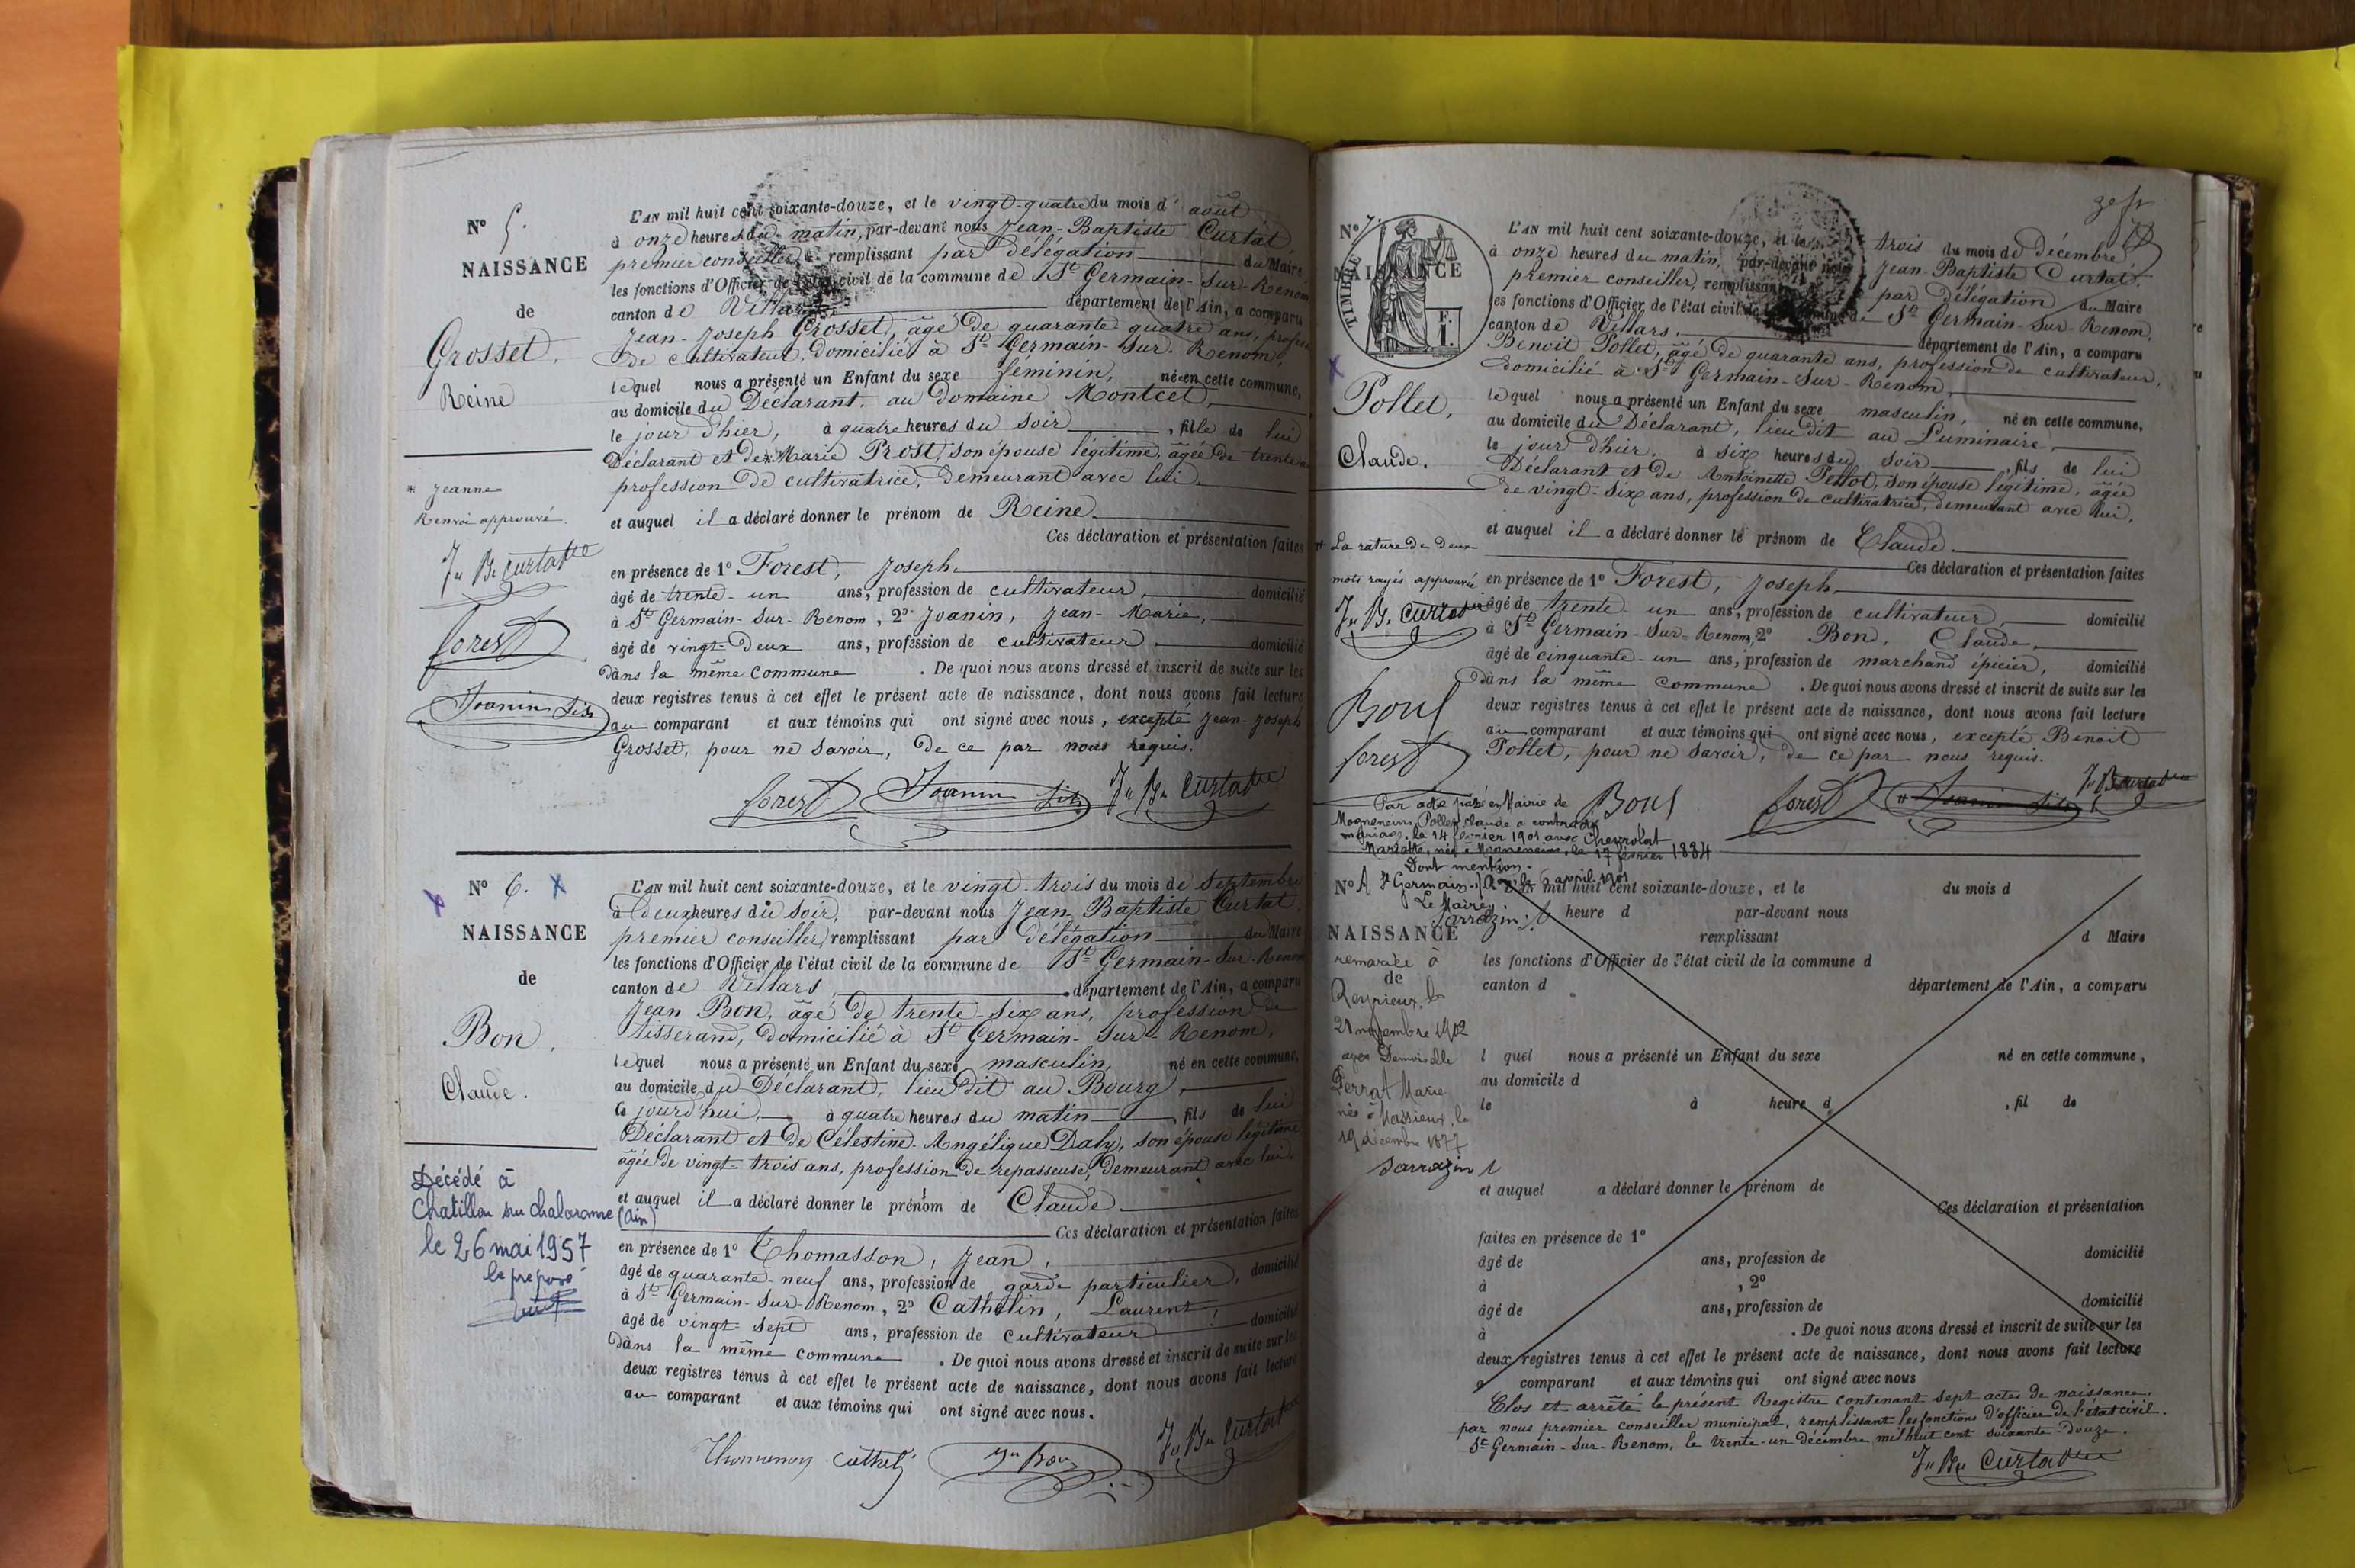 N° 5.
NAISSANCE
de
Grosset,
Reine
* Jeanne
Renvoi approuvé.
Jn Bte Curtat
forest
Joanin fils
L'AN mil huit cent soixante-douze, et le vingt-quatre du mois d' août
à onze heures du matin, par-devant nous Jean-Baptiste Curtat
premier conseiller remplissant par délégation du Maire
les fonctions d'Officier de l'état civil de la commune de St Germain-Sur-Renom
canton de Villars département de l'Ain, a comparu
Jean-Joseph Grosset, âgé de quarante quatre ans, profession
de cultivateur, domicilié à St Germain-Sur-Renom,
lequel nous a présenté un Enfant du sexe féminin, né en cette commune,
au domicile du Déclarant, au domaine Montcel,
le jour d'hier, à quatre heures du soir , fille de lui
Déclarant et de * Marie Prost, son épouse légitime, âgée de trente
profession de cultivatrice, demeurant avec lui
et auquel il a déclaré donner le prénom de Reine
Ces déclaration et présentation faites
en présence de 1° Forest, Joseph,
âgé de trente-un ans, profession de cultivateur, domicilié
à St Germain-Sur-Renom, 2° Joanin, Jean-Marie,
âgé de vingt-deux ans, profession de cultivateur domicilié
dans la même commune . De quoi nous avons dressé et inscrit de suite sur les
deux registres tenus à cet effet le présent acte de naissance, dont nous avons fait lecture
au comparant et aux témoins qui ont signé avec nous, excepté Jean-Joseph
Grosset, pour ne savoir, de ce par nous requis.
forest Joanin fils Jn Bte Curtat
N° 6.
NAISSANCE
de
Bon,
Claude.
Décédé à
Chatillon sur Chalaronne (Ain)
le 26 mai 1957
le préposé
L'AN mil huit cent soixante-douze, et le vingt-trois du mois de Septembre
à deux heures du soir, par-devant nous Jean-Baptiste Curtat,
premier conseiller, remplissant par délégation du Maire
les fonctions d'Officier de l'état civil de la commune de St Germain-Sur-Renom
canton de Villars, département de l'Ain, a comparu
Jean Bon, âgé de trente-six ans, profession de
tisserand, domicilié à St Germain-Sur-Renom,
lequel nous a présenté un Enfant du sexe masculin, né en cette commune,
au domicile du Déclarant, lieu dit au Bourg,
le jourd'hui, à quatre heures du matin , fils de lui
Déclarant et de Célestine-Angélique Daly, son épouse légitime
âgée de vingt-trois ans, profession de repasseuse, demeurant avec lui
et auquel il a déclaré donner le prénom de Claude
Ces déclaration et présentation faites
en présence de 1° Thomasson, Jean,
âgé de quarante-neuf ans, profession de garde particulier, domicilié
à St Germain-Sur-Renom, 2° Cathelin, Laurent,
âgé de vingt-sept ans, profession de cultivateur domicilié
dans la même commune . De quoi nous avons dressé et inscrit de suite sur les
deux registres tenus à cet effet le présent acte de naissance, dont nous avons fait lecture
au comparant et aux témoins qui ont signé avec nous.
Jn Bon Jn Bte Curtat
N° 7.
TIMBRE
NAISSANCE
F.
1.
Pollet,
Claude.
* La rature de deux
mots rayés approuvée
Jn Bte Curtat
Bon
forest
L'AN mil huit cent soixante-douze, et le trois du mois de Décembre
à onze heures du matin, par-devant nous Jean-Baptiste Curtat,
premier conseiller, remplissant par délégation du Maire
les fonctions d'Officier de l'état civil de St Germain-Sur-Renom,
canton de Villars, département de l'Ain, a comparu
Benoit Pollet, âgé de quarante ans, profession de cultivateur,
domicilié à St Germain-Sur-Renom,
lequel nous a présenté un Enfant du sexe masculin, né en cette commune,
au domicile du Déclarant, lieu dit au Luminaire,
le jour d'hier, à six heures du soir , fils de lui
Déclarant et de Antoinette Pellot, son épouse légitime, âgée
de vingt-six ans, profession de cultivatrice, demeurant avec lui,
et auquel il a déclaré donner le prénom de Claude
Ces déclaration et présentation faites
en présence de 1° Forest, Joseph
âgé de trente-un ans, profession de cultivateur, domicilié
à St Germain-Sur-Renom, 2° Bon, Claude,
âgé de cinquante-un ans, profession de marchand épicier, domicilié
dans la même commune . De quoi nous avons dressé et inscrit de suite sur les
deux registres tenus à cet effet le présent acte de naissance, dont nous avons fait lecture
au comparant et aux témoins qui ont signé avec nous, excepté Benoit
Pollet, pour ne savoir, de ce par nous requis.
Bon forest * Joanin fils Jn Bte Curtat
Par acte passé en Mairie de
Mogneneins, Pollet Claude a contracté
mariage, le 14 février 1901 avec Chevrolat
Mariette, née à Mogneneins, le 17 février 1884
Dont mention.
St Germain-s/R, le 6 avril 1901
Le Maire,
Sarrazin
remarié à
Reyrieux, le
21 novembre 1902
avec Demoiselle
Perrat Marie
née à Massieux, le
19 décembre 1877
Sarrazin
N°
NAISSANCE
de
L'AN mil huit cent soixante-douze, et le du mois d
à heure d par-devant nous
remplissant d Maire
les fonctions d'Officier de l'état civil de la commune d
canton d département de l'Ain, a comparu
l quel nous a présenté un Enfant du sexe né en cette commune,
au domicile d
le à heure d , fil de
et auquel a déclaré donner le prénom de
Ces déclaration et présentation
faites en présence de 1°
âgé de ans, profession de domicilié
à , 2°
âgé de ans, profession de domicilié
à . De quoi nous avons dressé et inscrit de suite sur les
deux registres tenus à cet effet le présent acte de naissance, dont nous avons fait lecture
a comparant et aux témoins qui ont signé avec nous
Clos et arrêté le présent Registre contenant sept actes de naissance,
par nous premier conseiller municipal, remplissant les fonctions d'officier de l'état civil.
St Germain-Sur-Renom, le trente-un décembre mil huit cent soixante-douze.
Jn Bte Curtat